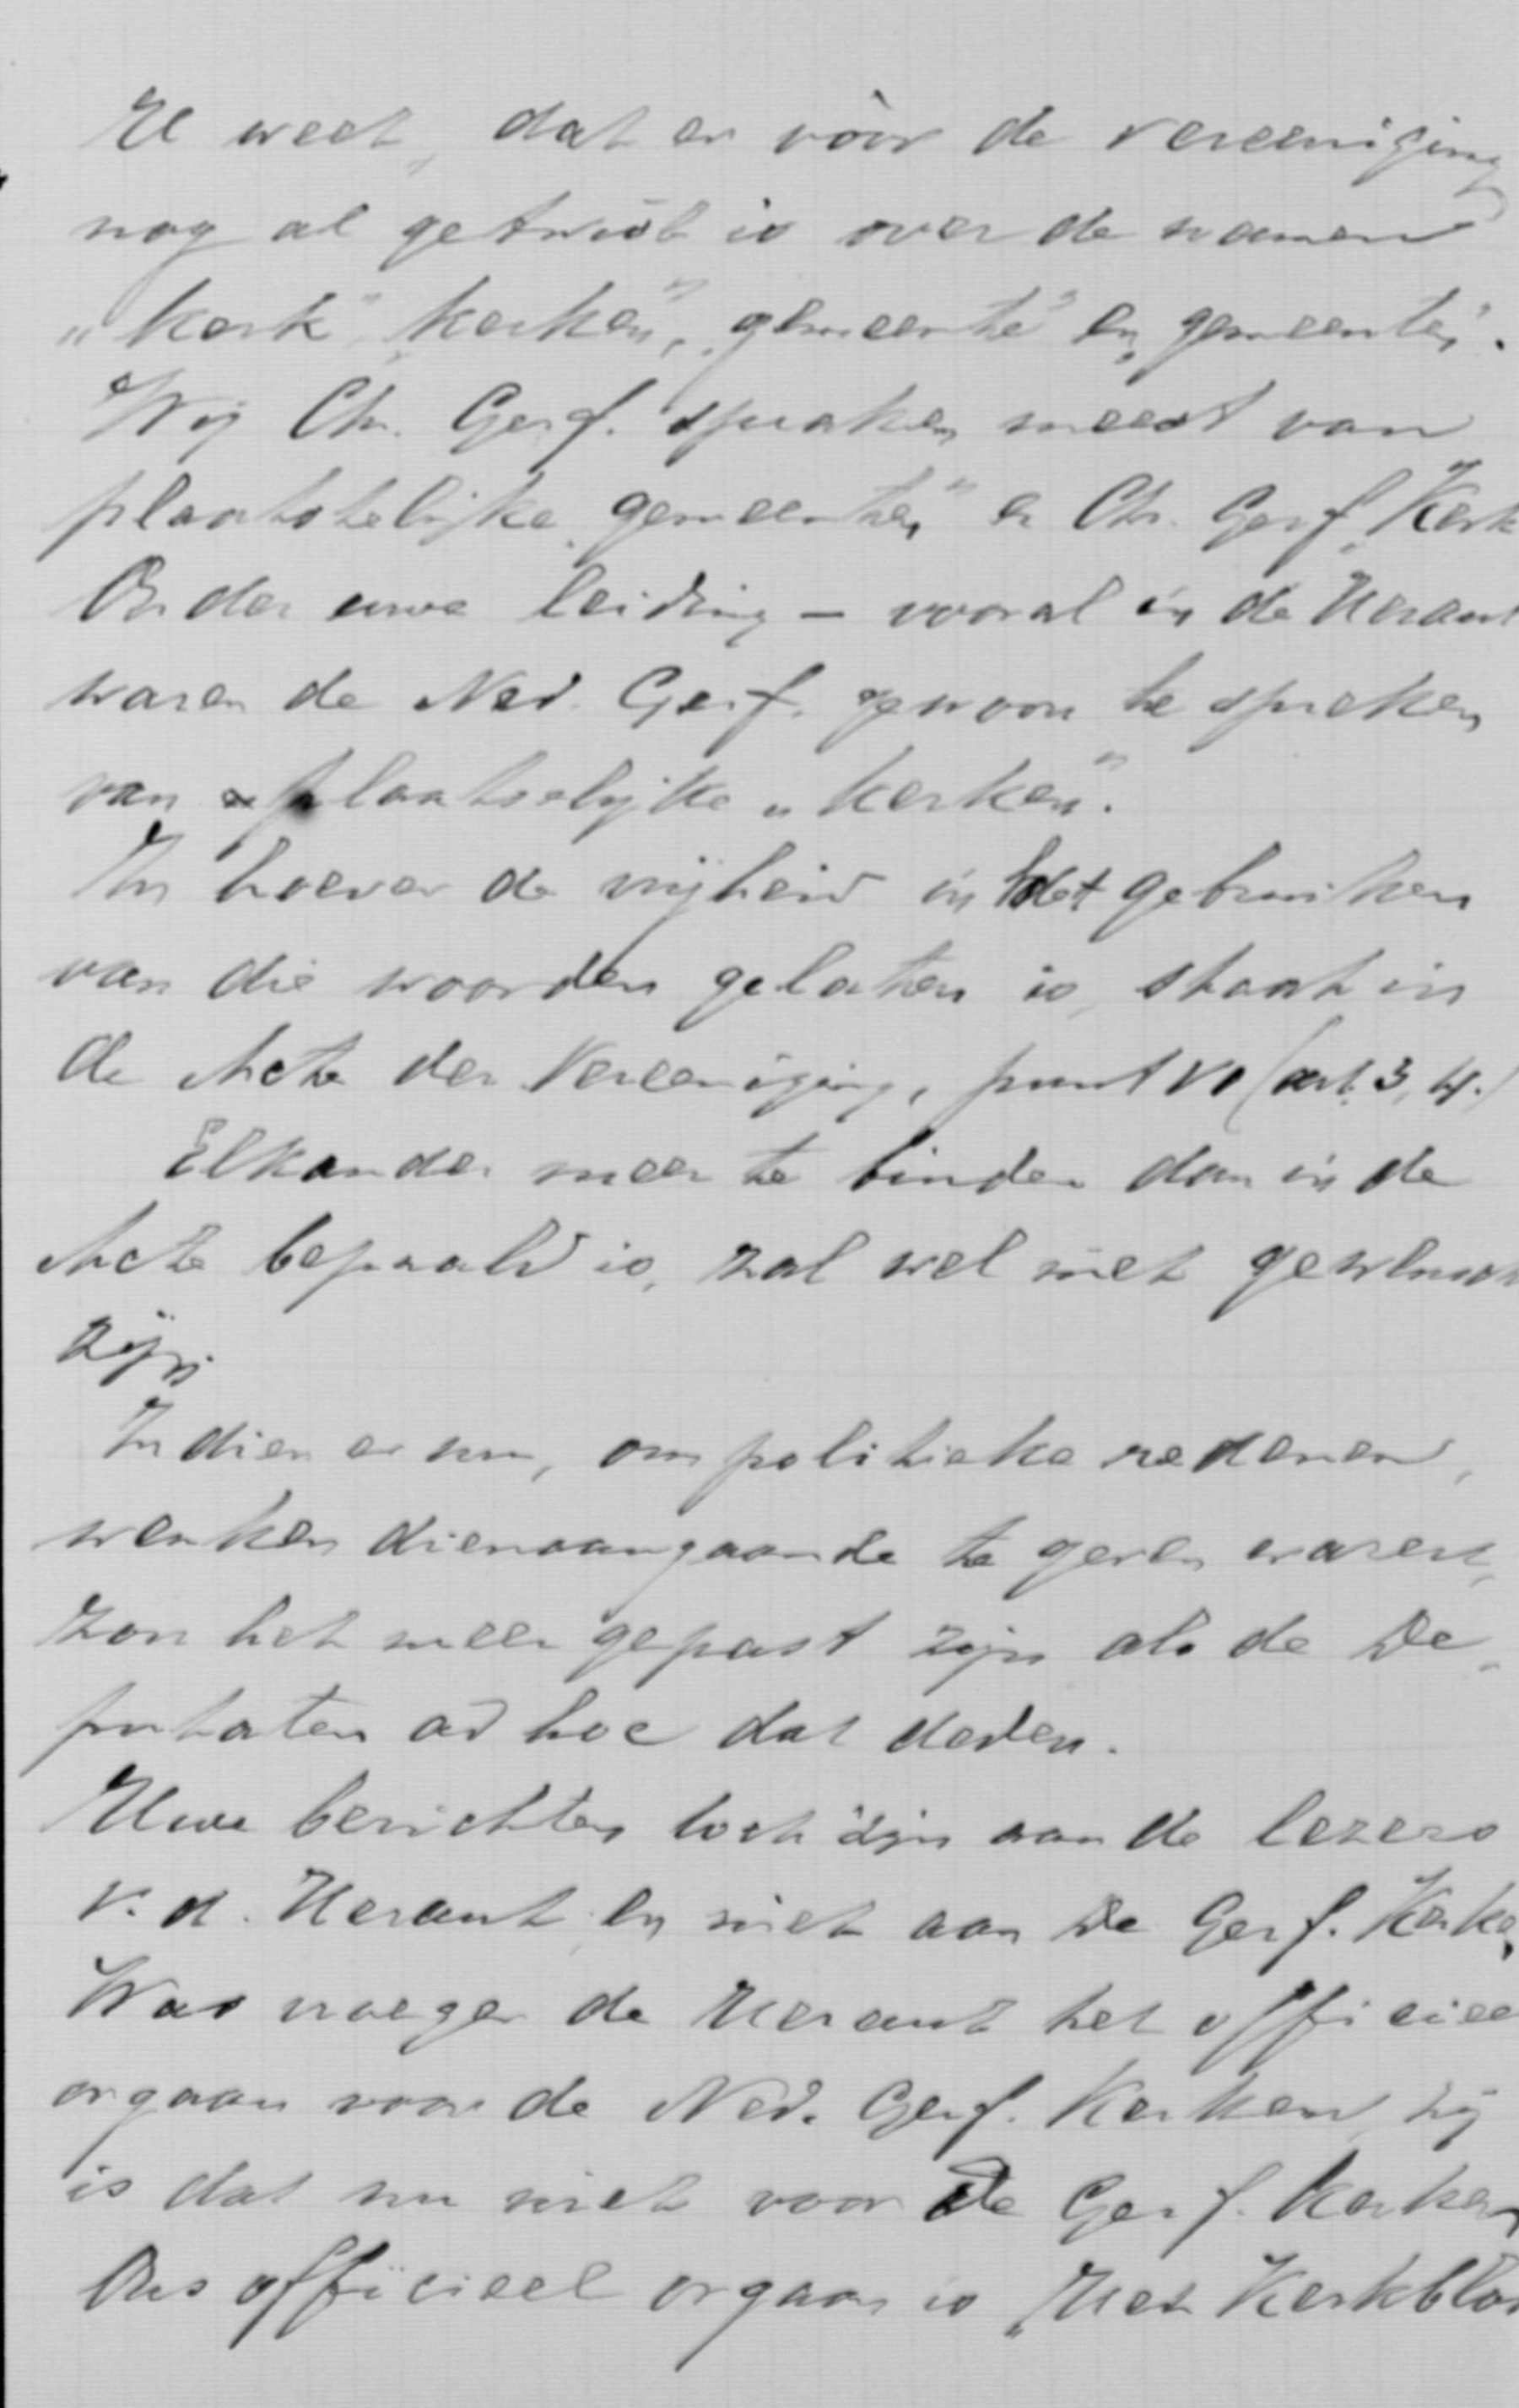 U weet, dat er vòòr de vereeniging
nog al getwist is over de namen
„kerk” „kerken”, „gemeente” en „gemeenten”.
Wij Chr. Geref. spraken meest van
plaatselijke „gemeenten” en Chr. Geref. „Kerk
Onder uwe leiding – vooral in de Heraut
waren de Ned. Geref. gewoon te spreken
van plaatselijke „kerken”.
In hoever de vrijheid in het gebruiken
van die woorden gelaten is, staat in
de Acte der Vereeniging, punt VI (art. 3, 4.)
Elkander meer te binden dan in de
Acte bepaald is, zal wel niet gewenscht
zijn.
Indien er nu, om politieke redenen,
wenken dienaangaande te geven waren,
zou het meer gepast zijn als de De-
putaten ad hoc dat deden.
Uwe berichten toch zijn aan de lezers
v. d. Heraut en niet aan De Geref. Kerken,
Was vroeger de Heraut het officieel
orgaan voor de Ned. Geref. Kerken, hij
is dat nu niet voor De Geref. Kerken
Ons officieel orgaan is „Het Kerkblad